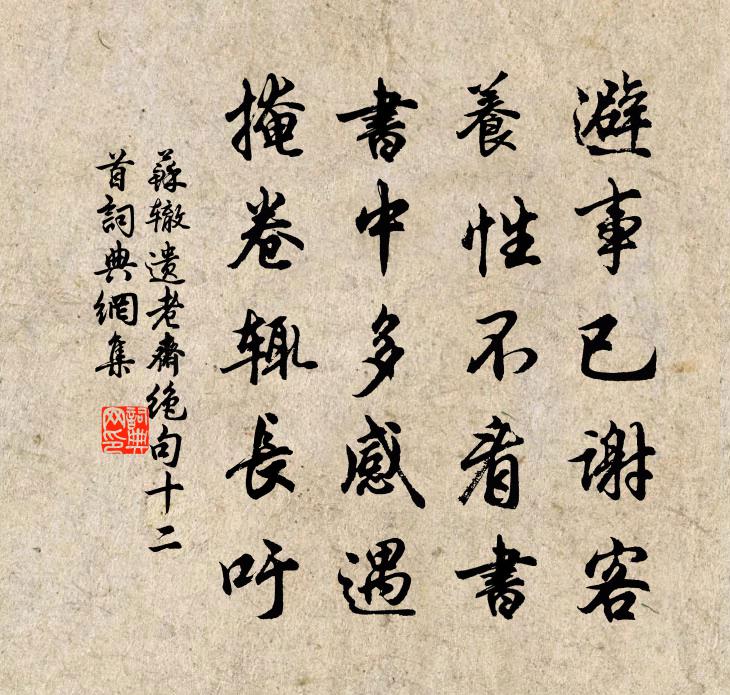 避事已谢客
養性不看書
書中多感遇
掩卷辄長吁
蘇辙遗老齋绝句十二
首詞典網集
詞典
网印